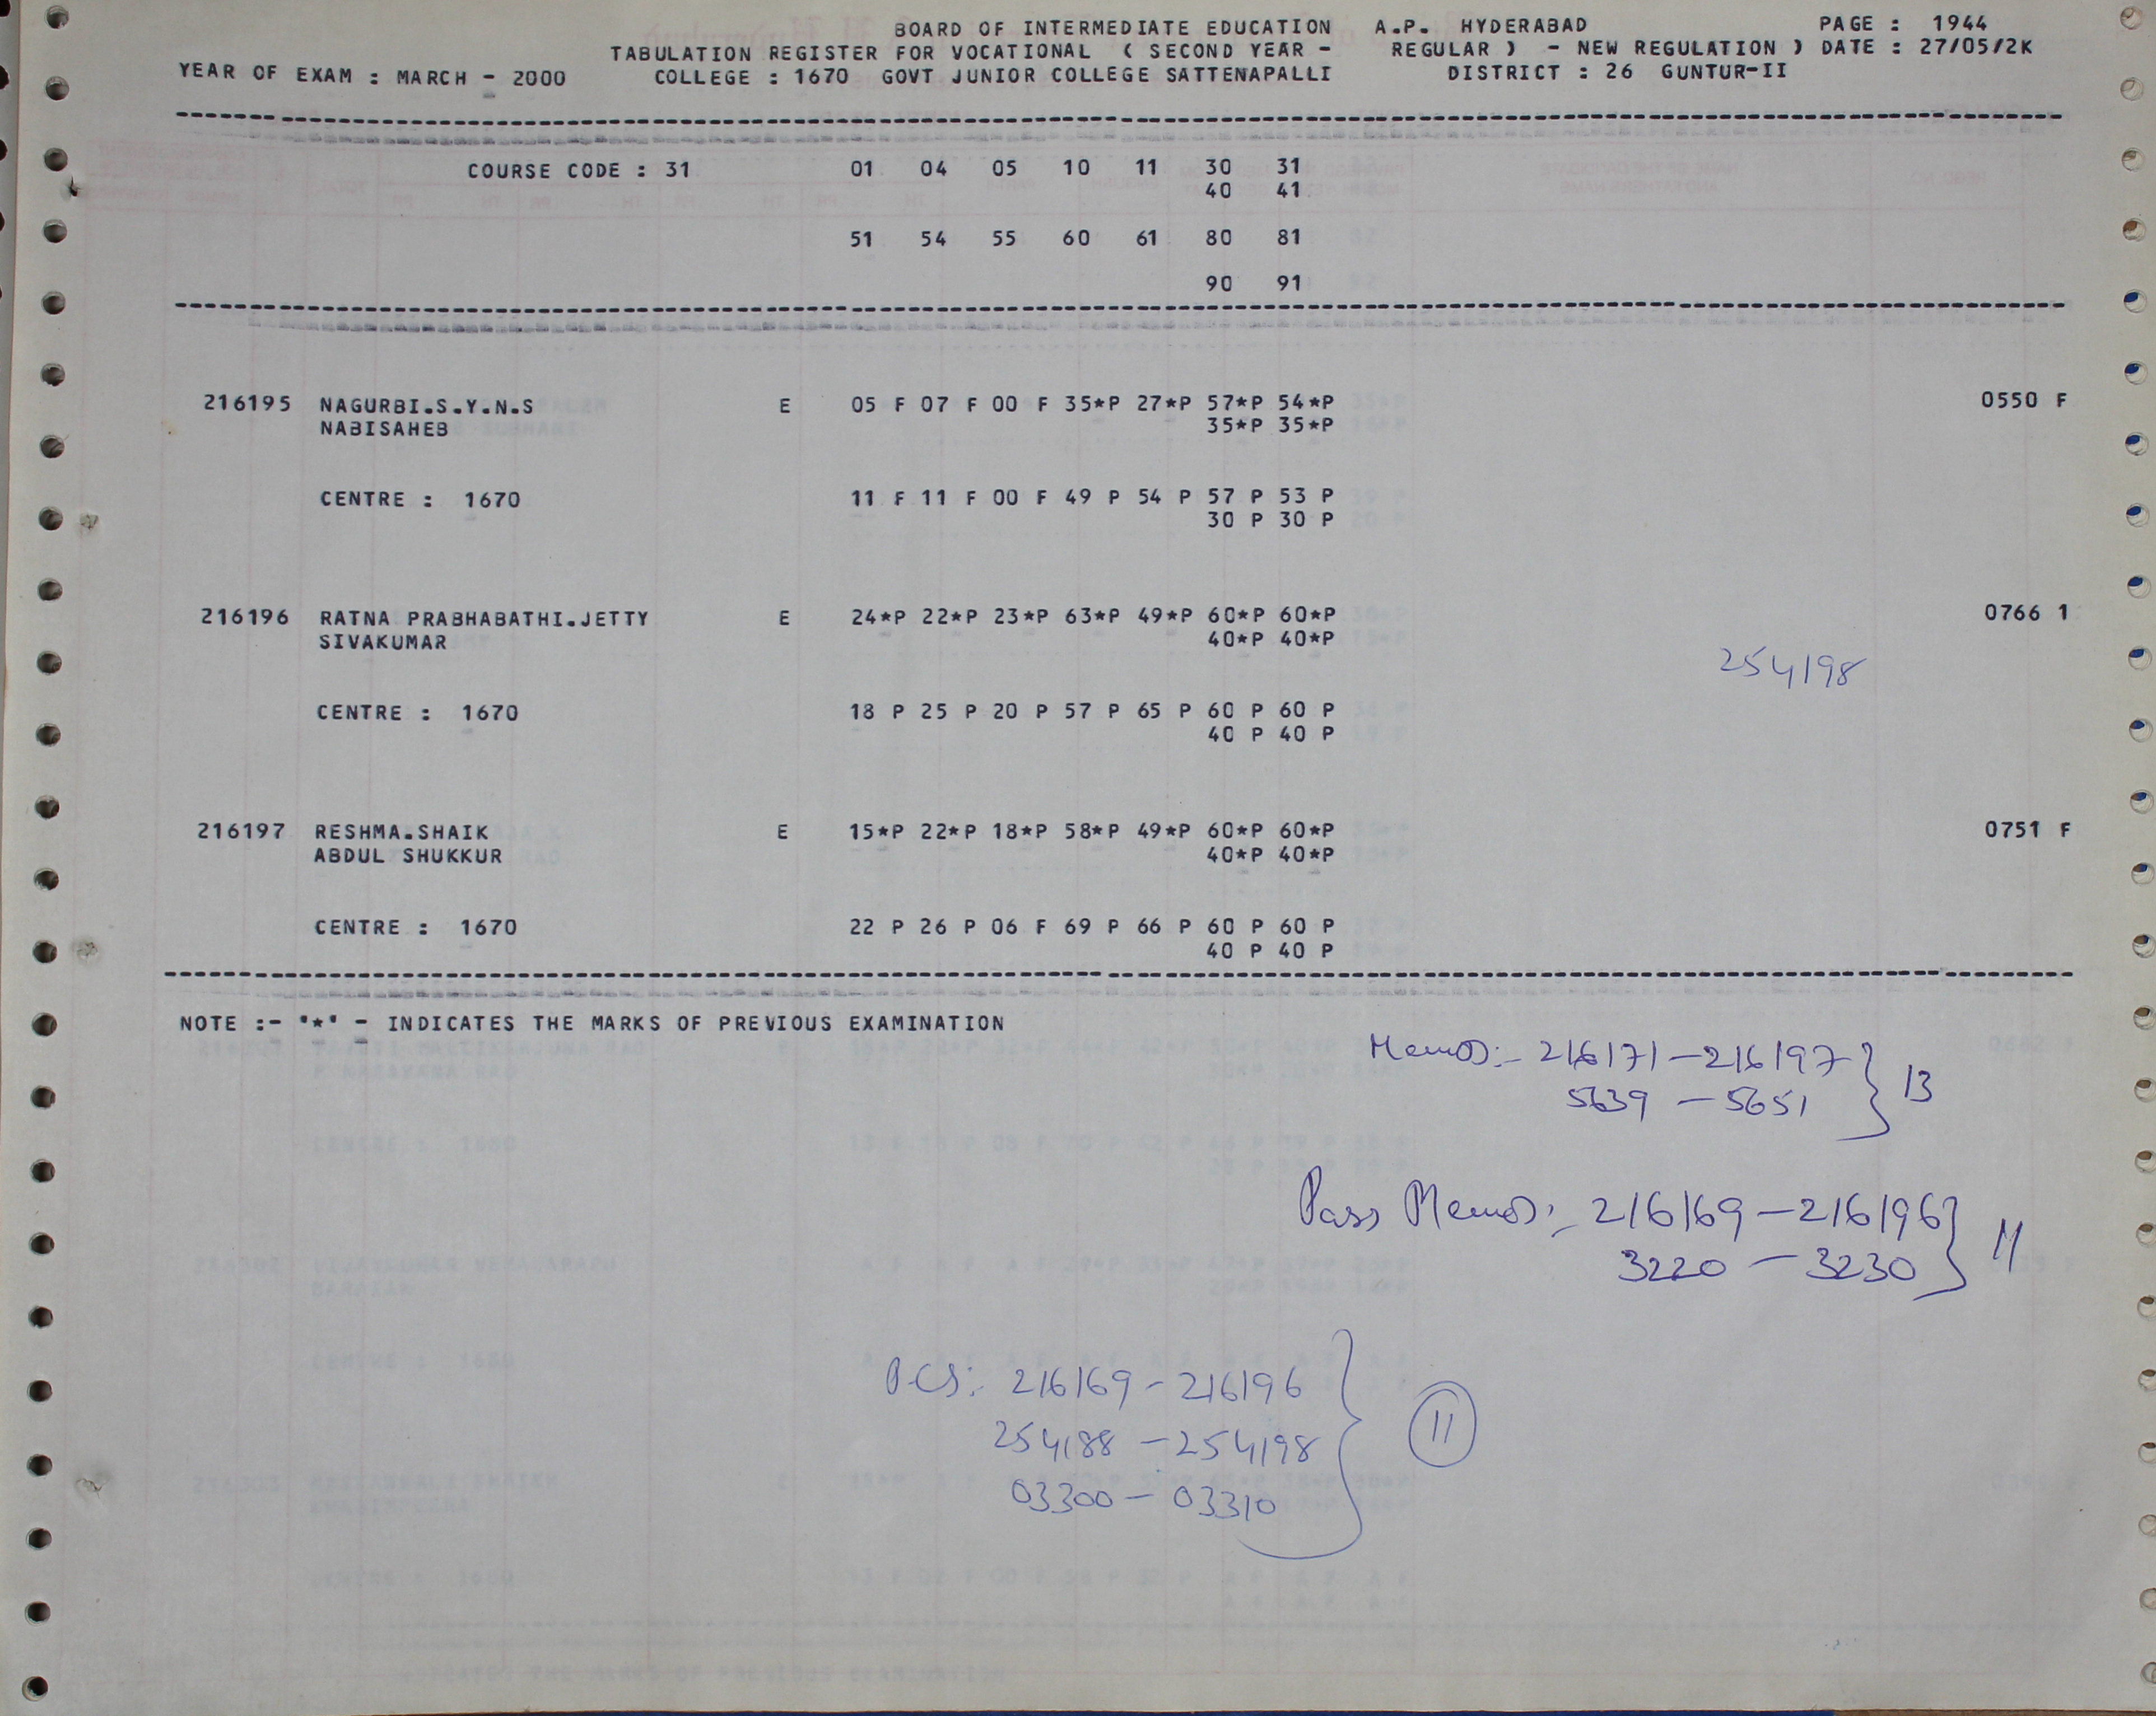 BOARD OF INTERMEDIATE EDUCATION A.P. HYDERABAD PAGE : 1944
TABULATION REGISTER FOR VOCATIONAL ( SECOND YEAR - REGULAR ) - NEW REGULATION ) DATE : 27/05/2K
YEAR OF EXAM : MARCH - 2000 COLLEGE : 1670 GOVT JUNIOR COLLEGE SATTENAPALLI DISTRICT : 26 GUNTUR-II
COURSE CODE : 31 01 04 05 10 11 30 31
40 41
51 54 55 60 61 80 81
90 91
216195 NAGURBI.S.Y.N.S E 05 F 07 F 00 F 35*P 27*P 57*P 54*P 0550 F
NABISAHEB 35*P 35*P
CENTRE : 1670 11 F 11 F 00 F 49 P 54 P 57 P 53 P
30 P 30 P
216196 RATNA PRABHABATHI.JETTY E 24*P 22*P 23*P 63*P 49*P 60*P 60*P 0766 1
SIVAKUMAR 40*P 40*P
254198
CENTRE : 1670 18 P 25 P 20 P 57 P 65 P 60 P 60 P
40 P 40 P
216197 RESHMA.SHAIK E 15*P 22*P 18*P 58*P 49*P 60*P 60*P 0751 F
ABDUL SHUKKUR 40*P 40*P
CENTRE : 1670 22 P 26 P 06 F 69 P 66 P 60 P 60 P
40 P 40 P
NOTE :- "*" - INDICATES THE MARKS OF PREVIOUS EXAMINATION
Memos:- 216171-216197 } 13
5639 - 5651
Pass Memos:- 216169-216196 } 11
3220 - 3230
PCs: 216169-216196
254188-254198 } 11
03300-03310